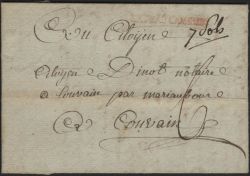 Au Citoyen 7 Sols
Citoyen Dinot notaire
a Louvain par
A Louvain